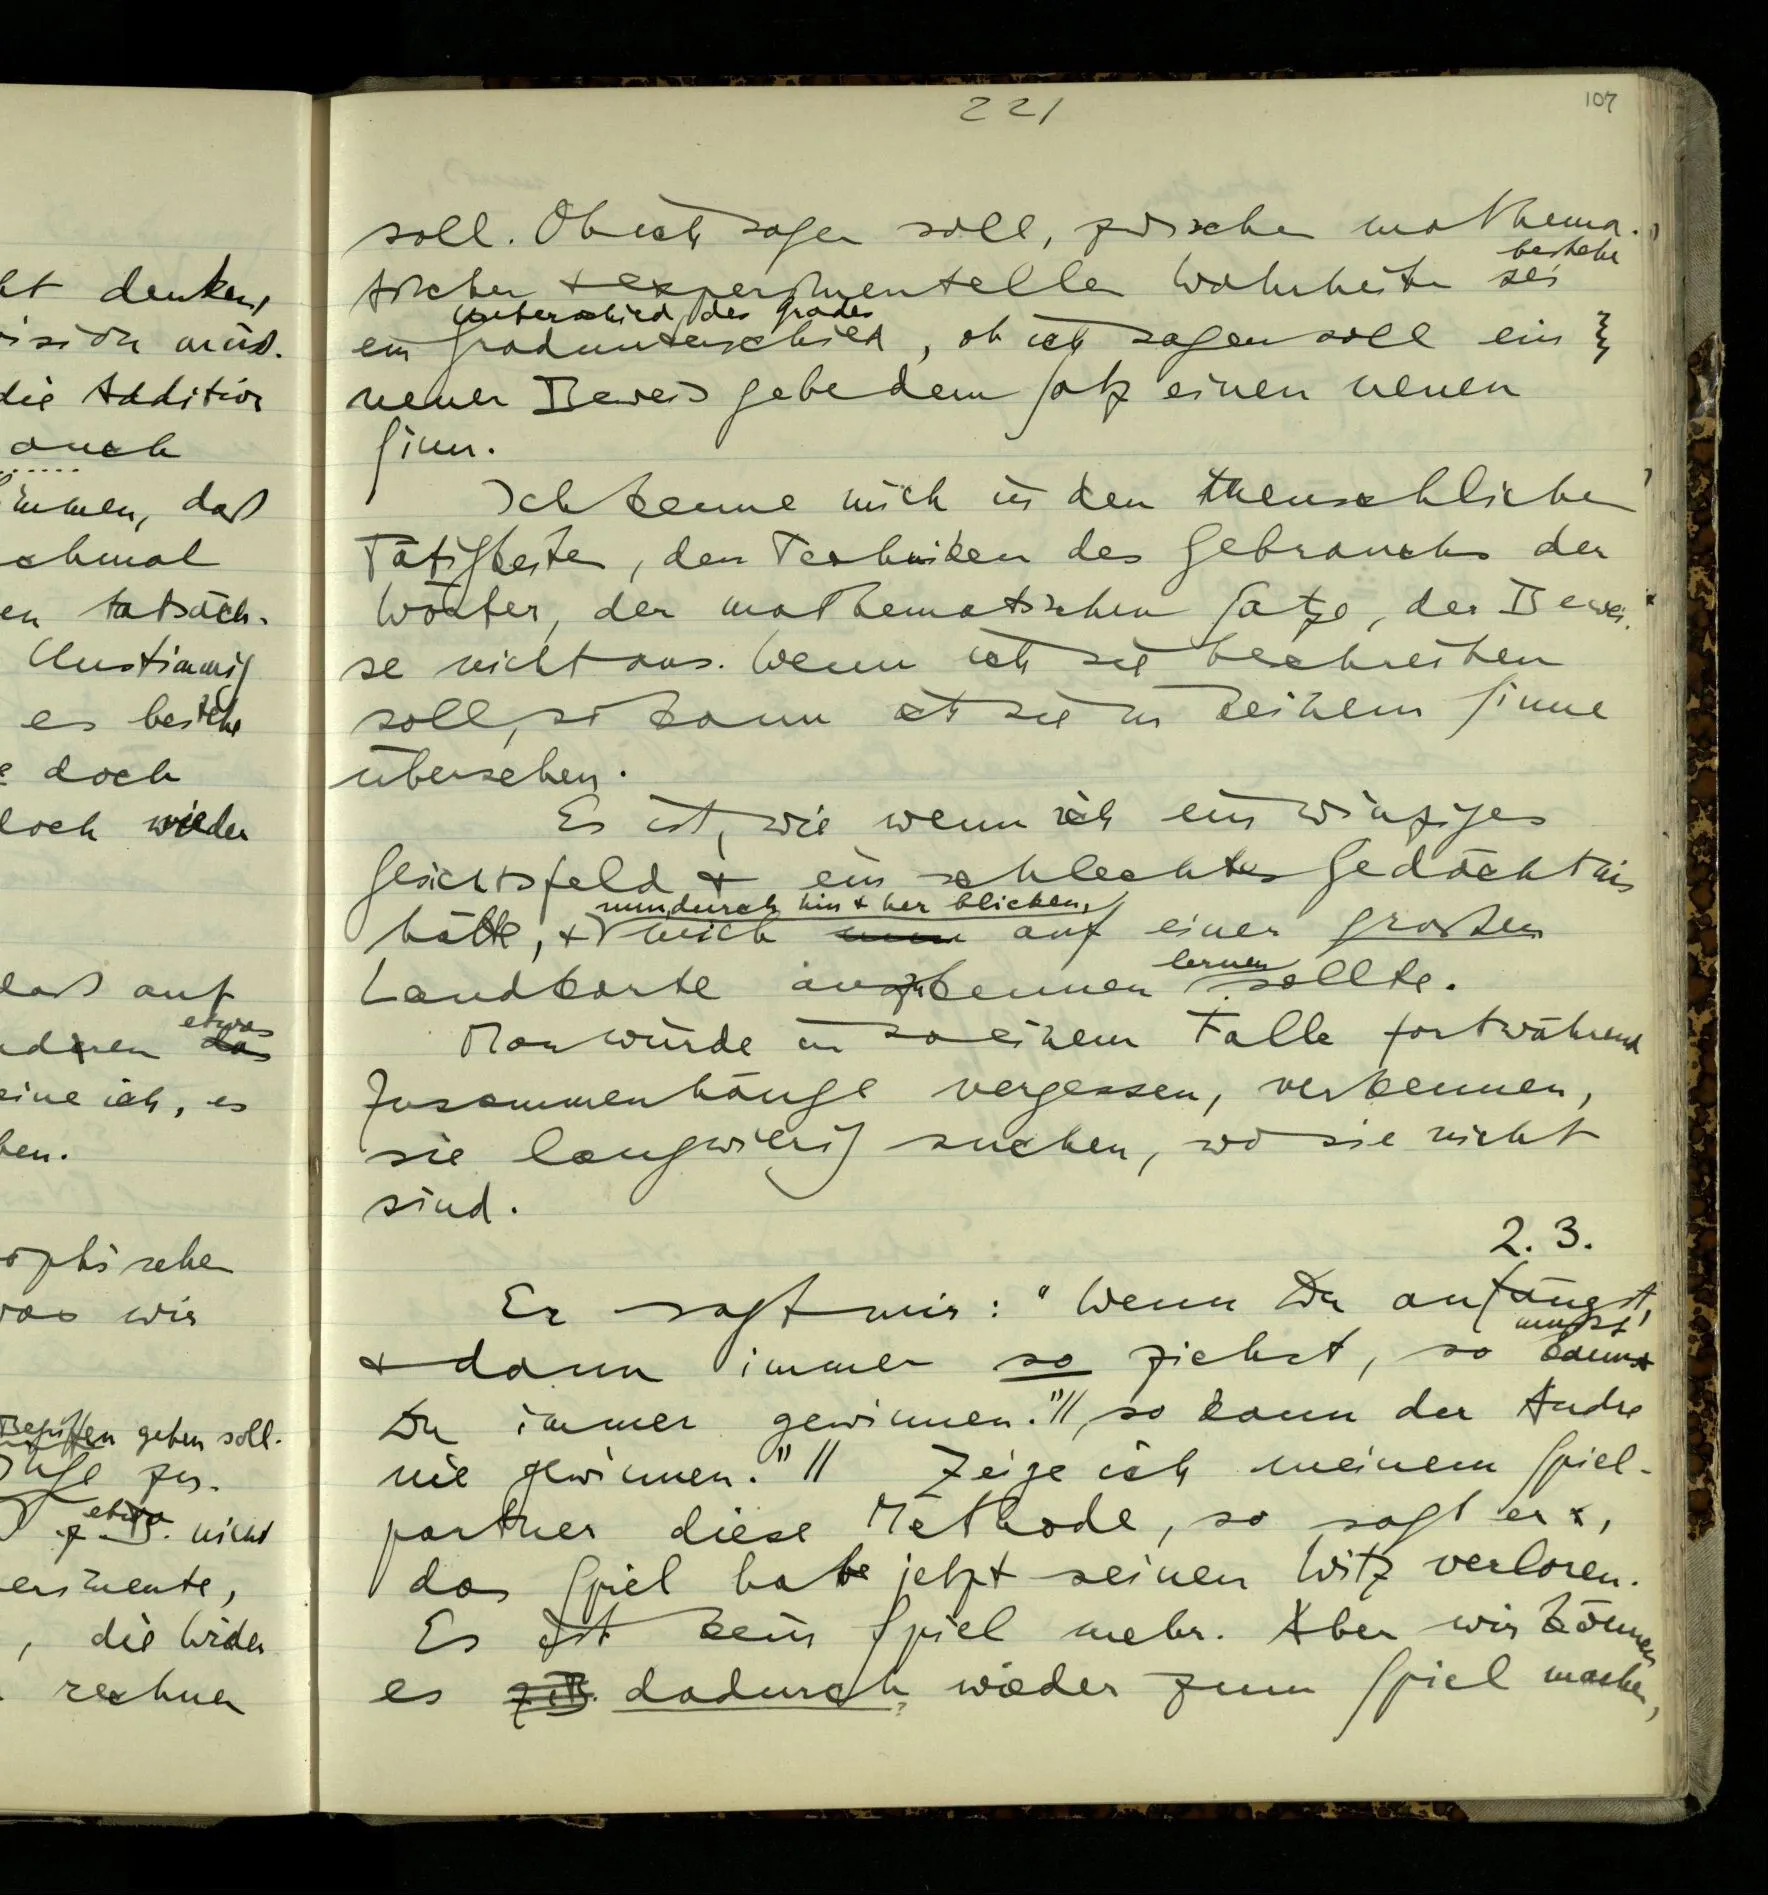 ht denken,
ision aus.
die Addition
auch
immen, daß
chmal
en tatsäch-
Unstimmig
es bestehe
e doch
doch wieder
daß auf
etwas
nderen das
eine ich, es
ben.
ophischen
was wir
Begriffen geben soll.
etwa
z.B. nicht
erimente,
, die wider
rechnen
221
107
soll. Ob ich sagen soll, zwischen mathema-
bestehe
tischen + experimentellen Wahrheiten sei
Unterschied des Grades
ein Gradunterschied, ob ich sagen soll ein
neuer Beweis gebe dem Satz einen neuen
Sinn.
Ich kenne mich in den menschlichen
Tätigkeiten, den Techniken des Gebrauchs der
Wörter, der mathematischen Sätze, der Bewei-
se nicht aus. Wenn ich sie beschreiben
soll, so kann ich sie in keinem Sinne
übersehen.
Es ist, wie wenn ich ein winziges
Gesichtsfeld + ein schlechtes Gedächtnis
nun, durch hin + her blicken,
hätte, + mich nun auf einer großen
lernen
Landkarte auskennen sollte.
Man würde in so einem Falle fortwährend
Zusammenhänge vergessen, verkennen,
sie langwierig suchen, wo sie nicht
sind.
2. 3.
Er sagt mir: "Wenn Du anfängst,
mußt
+ dann immer so ziehst, so kannst
Du immer gewinnen."//, so kann der Andre
nie gewinnen."// Zeige ich meinem Spiel-
partner diese Methode, so sagt er,
das Spiel habe jetzt seinen Witz verloren.
Es ist kein Spiel mehr. Aber wir können
es z.B. dadurch wieder zum Spiel machen,